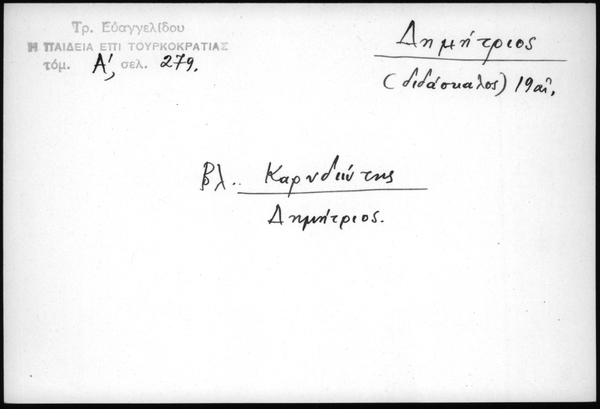 Τρ. Εὐαγγελίδου
Η ΠΑΙΔΕΙΑ ΕΠΙ ΤΟΥΡΚΟΚΡΑΤΙΑΣ
τόμ. Α', σελ. 279.
Δημήτριος
(διδάσκαλος) 19 αἰ.
Βλ. Καρυδιώτης
Δημήτριος.